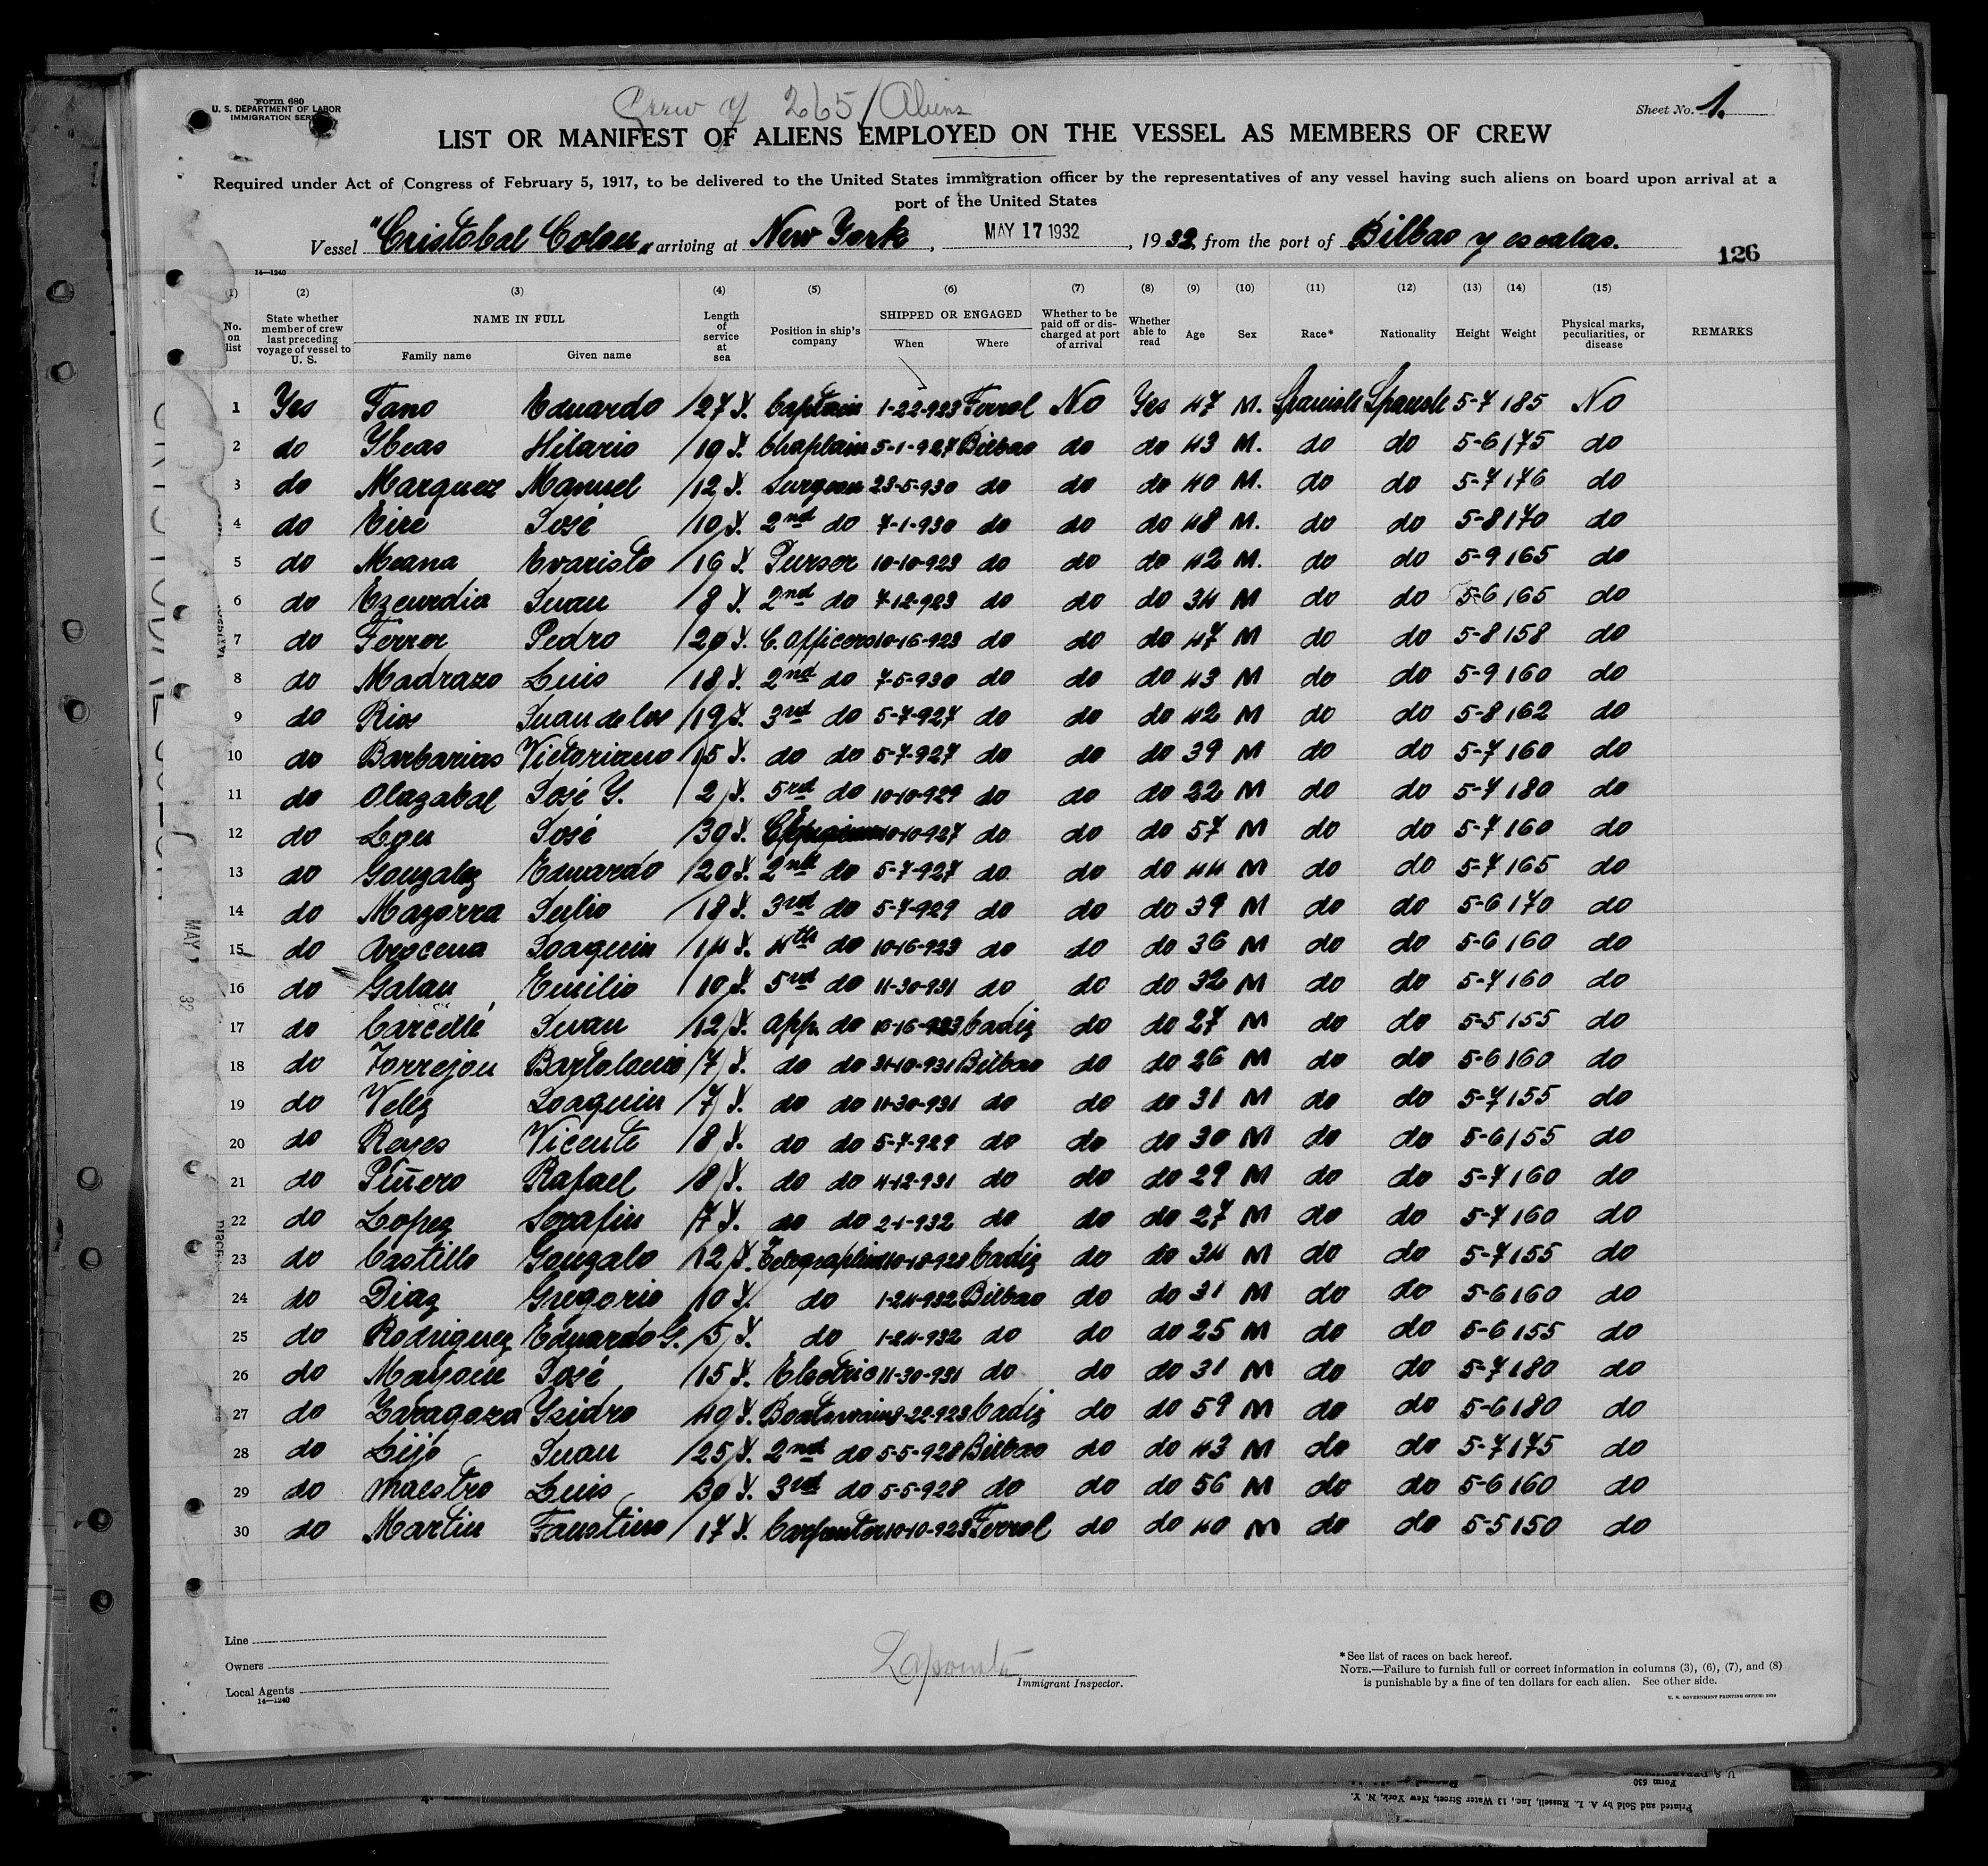 Form 680
U. S. DEPARTMENT OF LABOR
IMMIGRATION SER
Crew of 265 / Aliens
Sheet No. 1.
LIST OR MANIFEST OF ALIENS EMPLOYED ON THE VESSEL AS MEMBERS OF CREW
Required under Act of Congress of February 5, 1917, to be delivered to the United States immigration officer by the representatives of any vessel having such aliens on board upon arrival at a
port of the United States
Vessel "Cristobal Colon" arriving at New York, MAY 17 1932, 1932, from the port of Bilbao y escalas.
126
14—1240
(1) (2) (3) (4) (5) (6) (7) (8) (9) (10) (11) (12) (13) (14) (15)
No. on list State whether member of crew last preceding voyage of vessel to U. S. NAME IN FULL Family name Given name Length of service at sea Position in ship's company SHIPPED OR ENGAGED When Where Whether to be paid off or discharged at port of arrival Whether able to read Age Sex Race* Nationality Height Weight Physical marks, peculiarities, or disease REMARKS
1 Yes Fano Eduardo 27 Y. Captain 1-22-923 Ferrol No Yes 47 M. Spanish Spanish 5-7 185 No
2 do Ybeas Hilario 19 Y. Chaplain 5-1-927 Bilbao do do 43 M. do do 5-6 175 do
3 do Marquez Manuel 12 Y. Surgeon 23-5-930 do do do 40 M. do do 5-7 176 do
4 do Eire José 10 Y. 2nd do 7-1-930 do do do 48 M. do do 5-8 170 do
5 do Meana Evaristo 16 Y. Purser 10-10-923 do do do 42 M. do do 5-9 165 do
6 do Ezcurdia Juan 8 Y. 2nd do 7-12-923 do do do 34 M do do 5-6 165 do
7 do Ferrer Pedro 20 Y. C. Officers 10-16-923 do do do 47 M do do 5-8 158 do
8 do Madrazo Luis 18 Y. 2nd do 7-5-930 do do do 43 M do do 5-9 160 do
9 do Rios Juan de los 19 Y. 3rd do 5-7-927 do do do 42 M do do 5-8 162 do
10 do Barbarias Victoriano 15 Y. do do 5-7-927 do do do 39 M do do 5-7 160 do
11 do Olazabal José Y. 2 Y. 5rd do 10-10-929 do do do 22 M do do 5-7 180 do
12 do José 30 Y. 10-10-927 do do do 57 M do do 5-7 160 do
13 do Gonzalez Eduardo 20 Y. 2nd do 5-7-927 do do do 44 M do do 5-7 165 do
14 do Mazorra Julio 18 Y. 3rd do 5-7-929 do do do 39 M do do 5-6 170 do
15 do Arocena Joaquin 14 Y. 4th do 10-16-923 do do do 36 M do do 5-6 160 do
16 do Galan Emilio 10 Y. 5rd do 11-30-931 do do do 32 M do do 5-7 160 do
17 do Carcellé Juan 12 Y. App. do 10-16-923 Cadiz do do 27 M do do 5-5 155 do
18 do Torrejon Bartolomé 7 Y. do do 31-10-931 Bilbao do do 26 M do do 5-6 160 do
19 do Velez Joaquin 7 Y. do do 11-30-931 do do do 31 M do do 5-7 155 do
20 do Reyes Vicente 8 Y. do do 5-7-929 do do do 30 M do do 5-6 155 do
21 do Piñero Rafael 8 Y. do do 4-12-931 do do do 29 M do do 5-7 160 do
22 do Lopez Serafin 7 Y. do do 2-1-932 do do do 27 M do do 5-7 160 do
23 do Castillo Gonzalo 12 Y. 10-18-928 Cadiz do do 34 M do do 5-7 155 do
24 do Diaz Gregorio 10 Y. do 1-24-932 Bilbao do do 31 M do do 5-6 160 do
25 do Rodriguez Eduardo G. 5 Y. do 1-24-932 do do do 25 M do do 5-6 155 do
26 do José 15 Y. Electric 11-30-931 do do do 31 M do do 5-7 180 do
27 do Zaragoza Ysidro 40 Y. Boatswain 9-22-923 Cadiz do do 59 M do do 5-6 180 do
28 do Lijo Juan 25 Y. 2nd do 5-5-928 Bilbao do do 43 M do do 5-7 175 do
29 do Maestro Luis 30 Y. 3rd do 5-5-928 do do do 56 M do do 5-6 160 do
30 do Martin Faustino 17 Y. Carpenter 10-10-923 Ferrol do do 40 M do do 5-5 150 do
Line
Owners
Local Agents
14—1240
Immigrant Inspector.
*See list of races on back hereof.
NOTE.—Failure to furnish full or correct information in columns (3), (6), (7), and (8)
is punishable by a fine of ten dollars for each alien. See other side.
U. S. GOVERNMENT PRINTING OFFICE: 1929
Form 630
Printed and Sold by A. L. Russell, Inc., 13 Water Street, New York, N. Y.